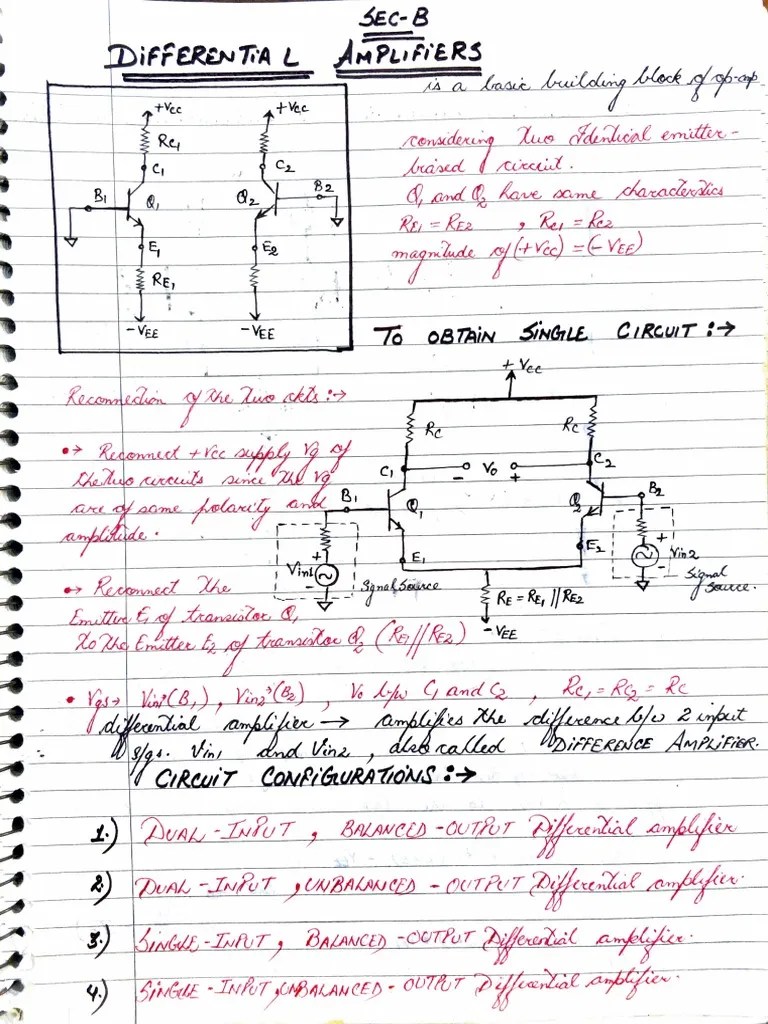 SEC-B
DIFFERENTIAL AMPLIFIERS
is a basic building block of op-amp
+Vcc +Vcc
RC1
C1 C2
B1 Q1 Q2 B2
E1 E2
RE1
-VEE -VEE
considering two Identical emitter-
biased circuit.
Q1 and Q2 have same characteristics
RE1 = RE2 , RC1 = RC2
magnitude of (+Vcc) = (-VEE)
TO OBTAIN SINGLE CIRCUIT :→
Reconnection of the two ckts :→
•→ Reconnect +Vcc supply Vg of
the two circuits since the Vg
are of same polarity and
amplitude.
•→ Reconnect the
Emitter E1 of transistor Q1
to the Emitter E2 of transistor Q2 (RE1//RE2)
+ Vcc
RC RC
C1 - Vo + C2
B1 Q1 Q2 B2
E1 E2
+ Vin1 - Signal Source
+ Vin2 - Signal
Source.
RE = RE1 // RE2
-VEE
• Vgs→ Vin1→(B1), Vin2→(B2) , Vo b/w C1 and C2 , RC1 = RC2 = RC
differential amplifier → amplifies the difference b/w 2 input
s/gs. Vin1 and Vin2 , also called DIFFERENCE AMPLIFIER.
CIRCUIT CONFIGURATIONS :→
1.) DUAL-INPUT , BALANCED-OUTPUT Differential amplifier
2.) DUAL-INPUT , UNBALANCED-OUTPUT Differential amplifier.
3.) SINGLE-INPUT , BALANCED-OUTPUT Differential amplifier.
4.) SINGLE-INPUT , UNBALANCED-OUTPUT Differential amplifier.